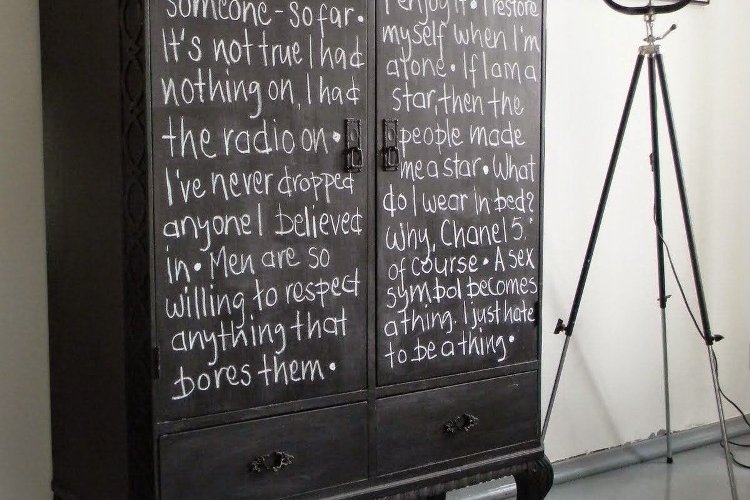 someone - so far.
It's not true I had
nothing on, I had
the radio on.
I've never dropped
anyone I believed
in. Men are so
willing to respect
anything that
bores them.
I enjoy it. I restore
myself when I'm
alone. If I am a
star, then the
people made
me a star. What
do I wear in bed?
Why, Chanel 5.
of course. A sex
symbol becomes
a thing. I just hate
to be a thing.